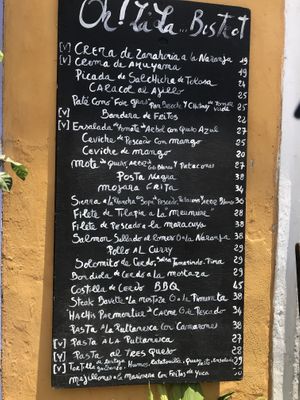 Oh! La La... Bistrot
[V] Crema de Zanahoria a la Naranja 19
[V] Crema de Ahuyama 19
Picada de Salchicha de Tolosa 24
Caracol al Ajillo 25
Paté como "Foie gras" 25
[V] Bandera de Fritos 22
[V] Ensalada de Tomate con Queso Azul 27
Ceviche de Pescado con mango 25
Ceviche de mango 20
Mote de Queso y Patacones 27
Posta Negra 38
Mojarra Frita 34
Sierra a la Plancha 36
Filete de Tilapia a la "Meuniere" 28
Filete de Pescado a la maracuya 38
Salmon Salteado a la Naranja 38
Pollo al Curry 29
Solomito de Cerdo, Salsa Tamarindo, Piña 29
Bondiola de Cerdo a la mostaza 29
Costilla de Cerdo BBQ 45
Steak Bavette a la mostaza o a la Pimienta 38
Hachis Parmentier de Pescado 34
Pasta a la Puttanesca con Camarones 38
[V] Pasta a la Puttanesca 27
[V] Pasta al Tres Queso 28
[V] Hummus, Ratatouille, 29
Mejillones a la Marinera con Fritos de Yuca